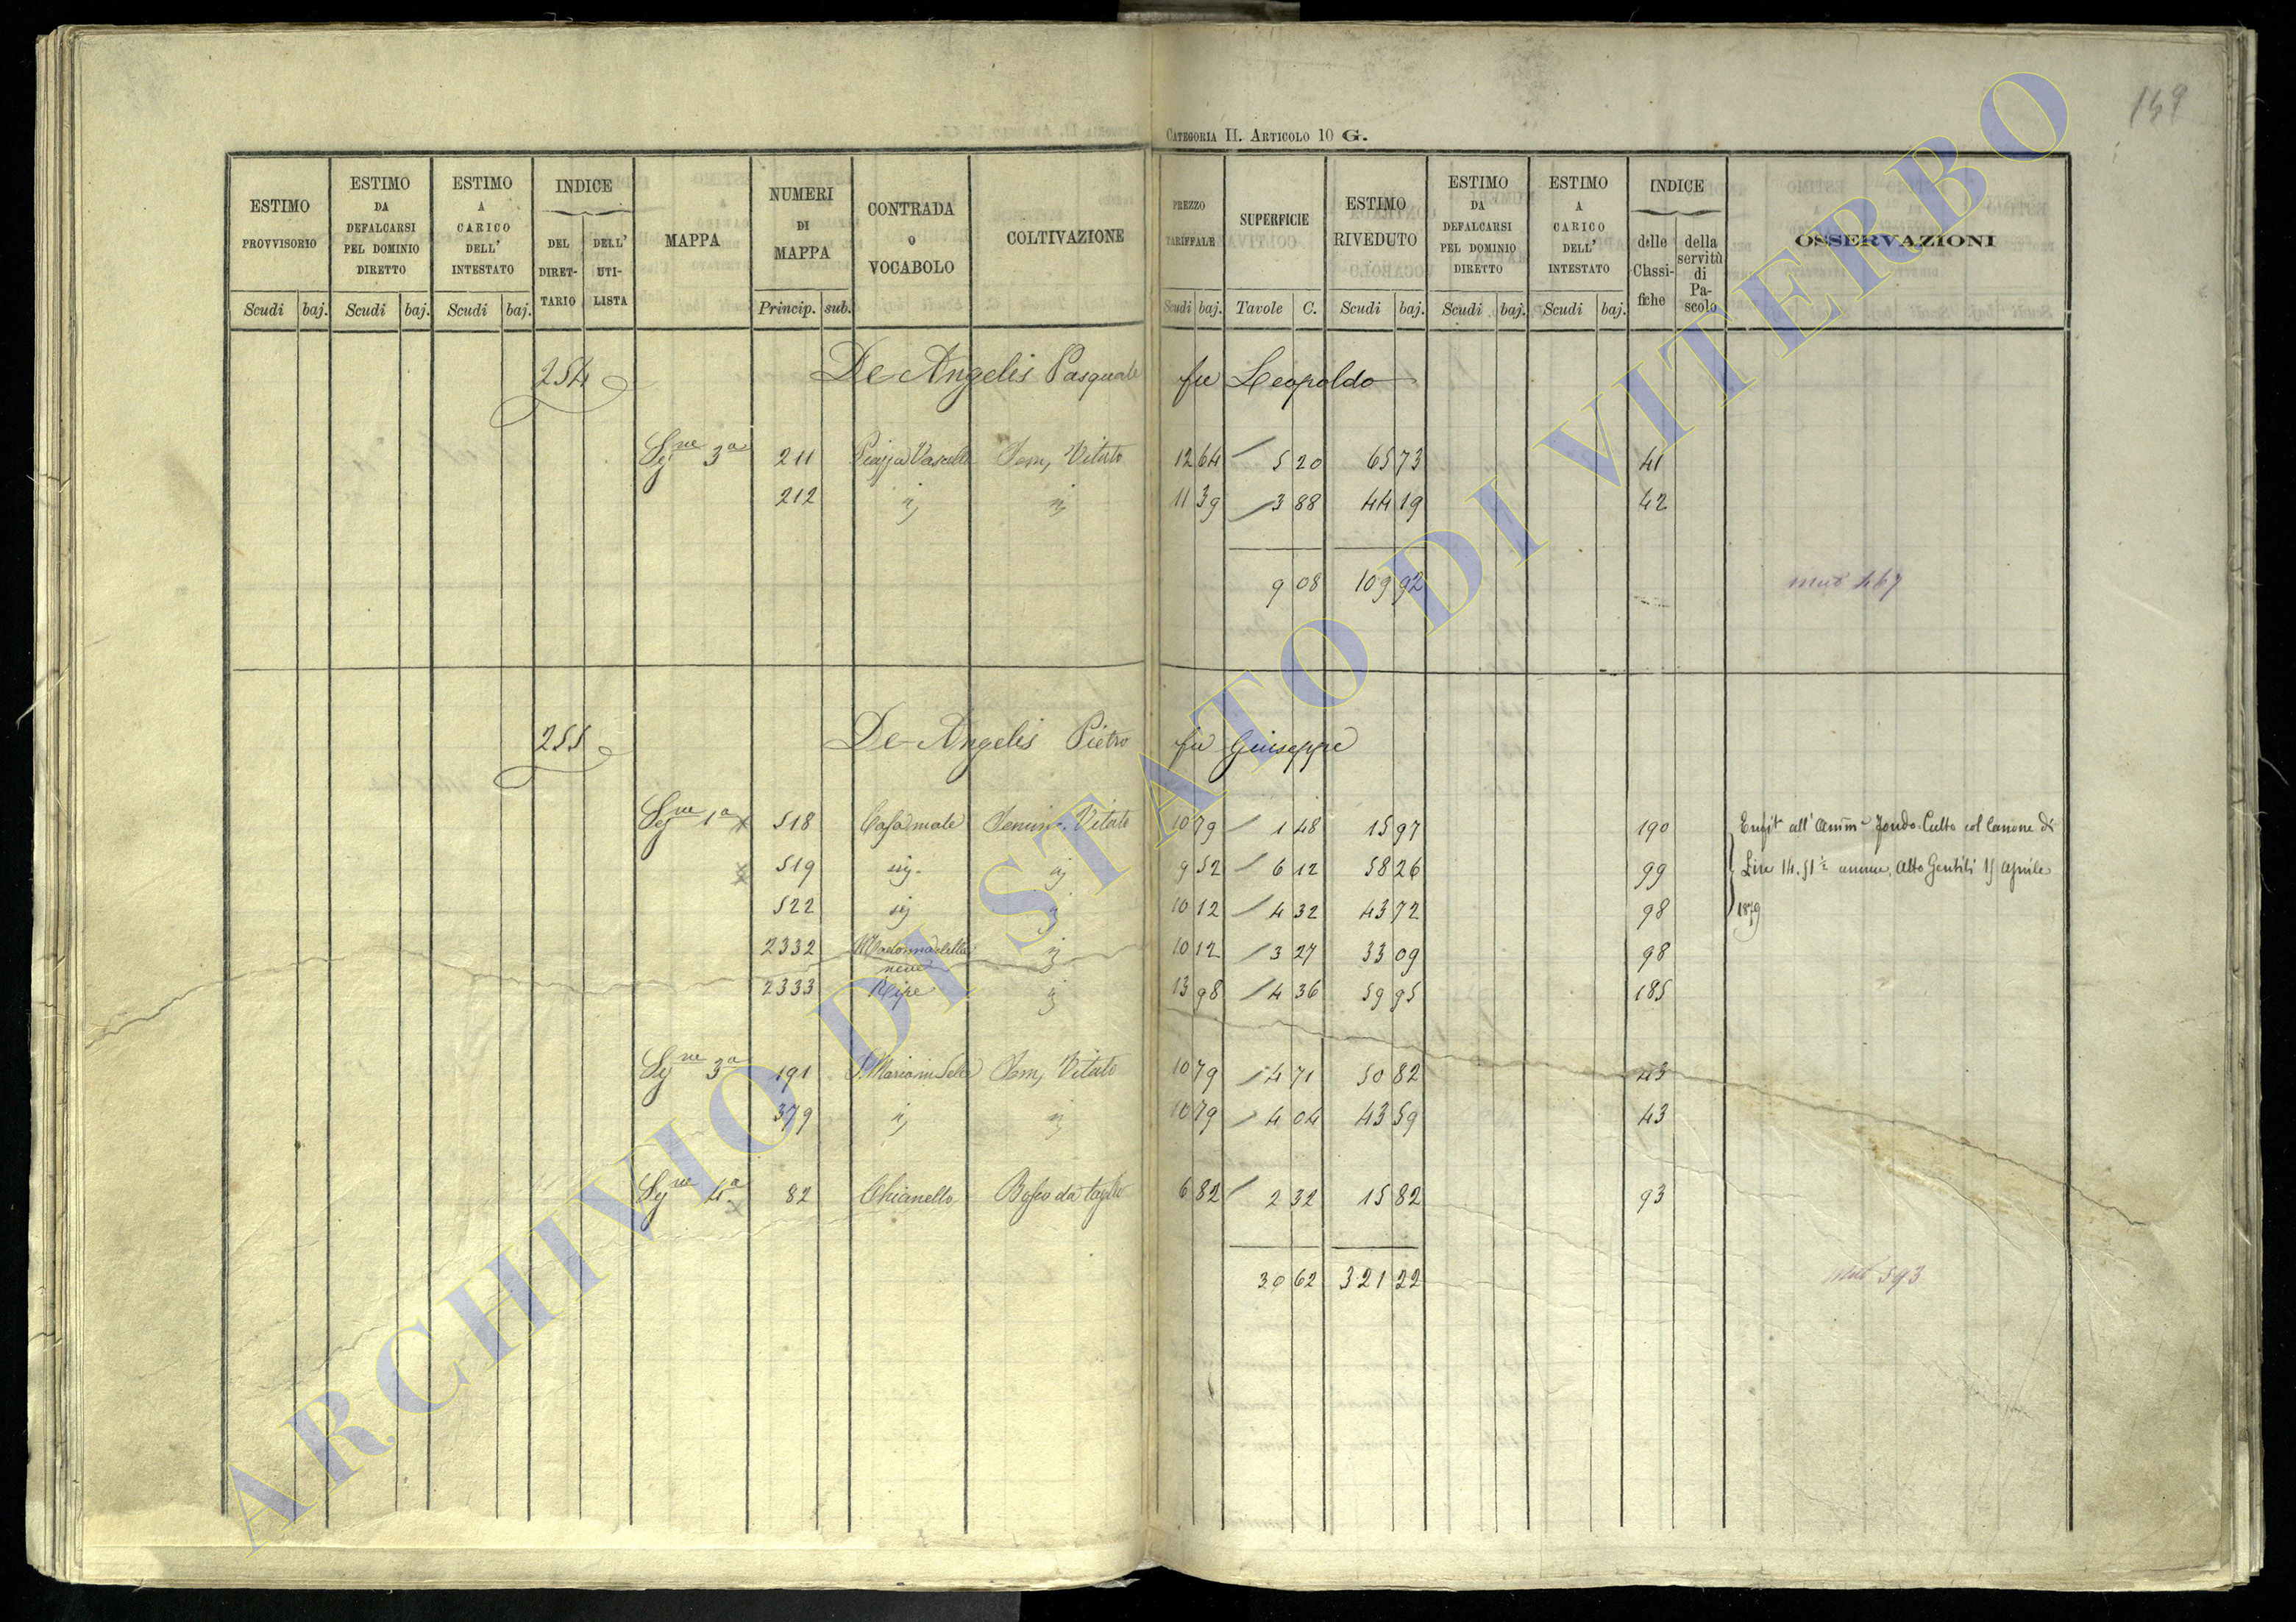 149
CATEGORIA II. ARTICOLO 10 G.
ESTIMO PROVVISORIO Scudi baj.
ESTIMO DA DEFALCARSI PEL DOMINIO DIRETTO Scudi baj.
ESTIMO A CARICO DELL' INTESTATO Scudi baj.
INDICE DEL DIRETTARIO DELL' UTILISTA
MAPPA
NUMERI DI MAPPA Princip. sub.
CONTRADA O VOCABOLO
COLTIVAZIONE
PREZZO TARIFFALE Scudi baj.
SUPERFICIE Tavole C.
ESTIMO RIVEDUTO Scudi baj.
ESTIMO DA DEFALCARSI PEL DOMINIO DIRETTO Scudi baj.
ESTIMO A CARICO DELL' INTESTATO Scudi baj.
INDICE delle Classifiche della servitù di Pascolo
OSSERVAZIONI
254 De Angelis Pasquale fu Leopoldo
3a 211 Piazza Sem, Vitato 12 64 5 20 65 73 41
212 ij ij 11 39 3 88 44 19 42
9 08 109 92
467
255 De Angelis Pietro fu Giuseppe
1a 518 Casamale Semin. Vitato 10 79 1 48 15 97 190 Enfit all' Amm Fondo Culto col Canone di
519 ij ij 9 52 6 12 58 26 99 Lire 14.51 annue, Atto Gentili 15 Aprile
522 ij ij 10 12 4 32 43 72 98 1879
2332 Madonna della neve ij 10 12 3 27 33 09 98
2333 Ripe ij 13 98 4 36 59 95 185
3a 191 S. Maria in Selce Sem, Vitato 10 79 4 71 50 82 43
379 ij ij 10 79 4 04 43 59 43
4a 82 Chianello Bosco da taglio 6 82 2 32 15 82 93
30 62 321 22
593
ARCHIVIO DI STATO DI VITERBO